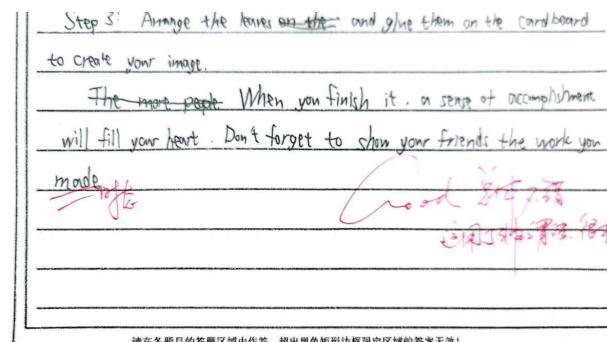 Step 3: Arrange the leaves on the and glue them on the cardboard
to create your image.
The more people When you finish it, a sense of accomplishment
will fill your heart. Don't forget to show your friends the work you
made
时态
Good
请在各题目的答题区域内作答,超出黑色矩形边框限定区域的答案无效!